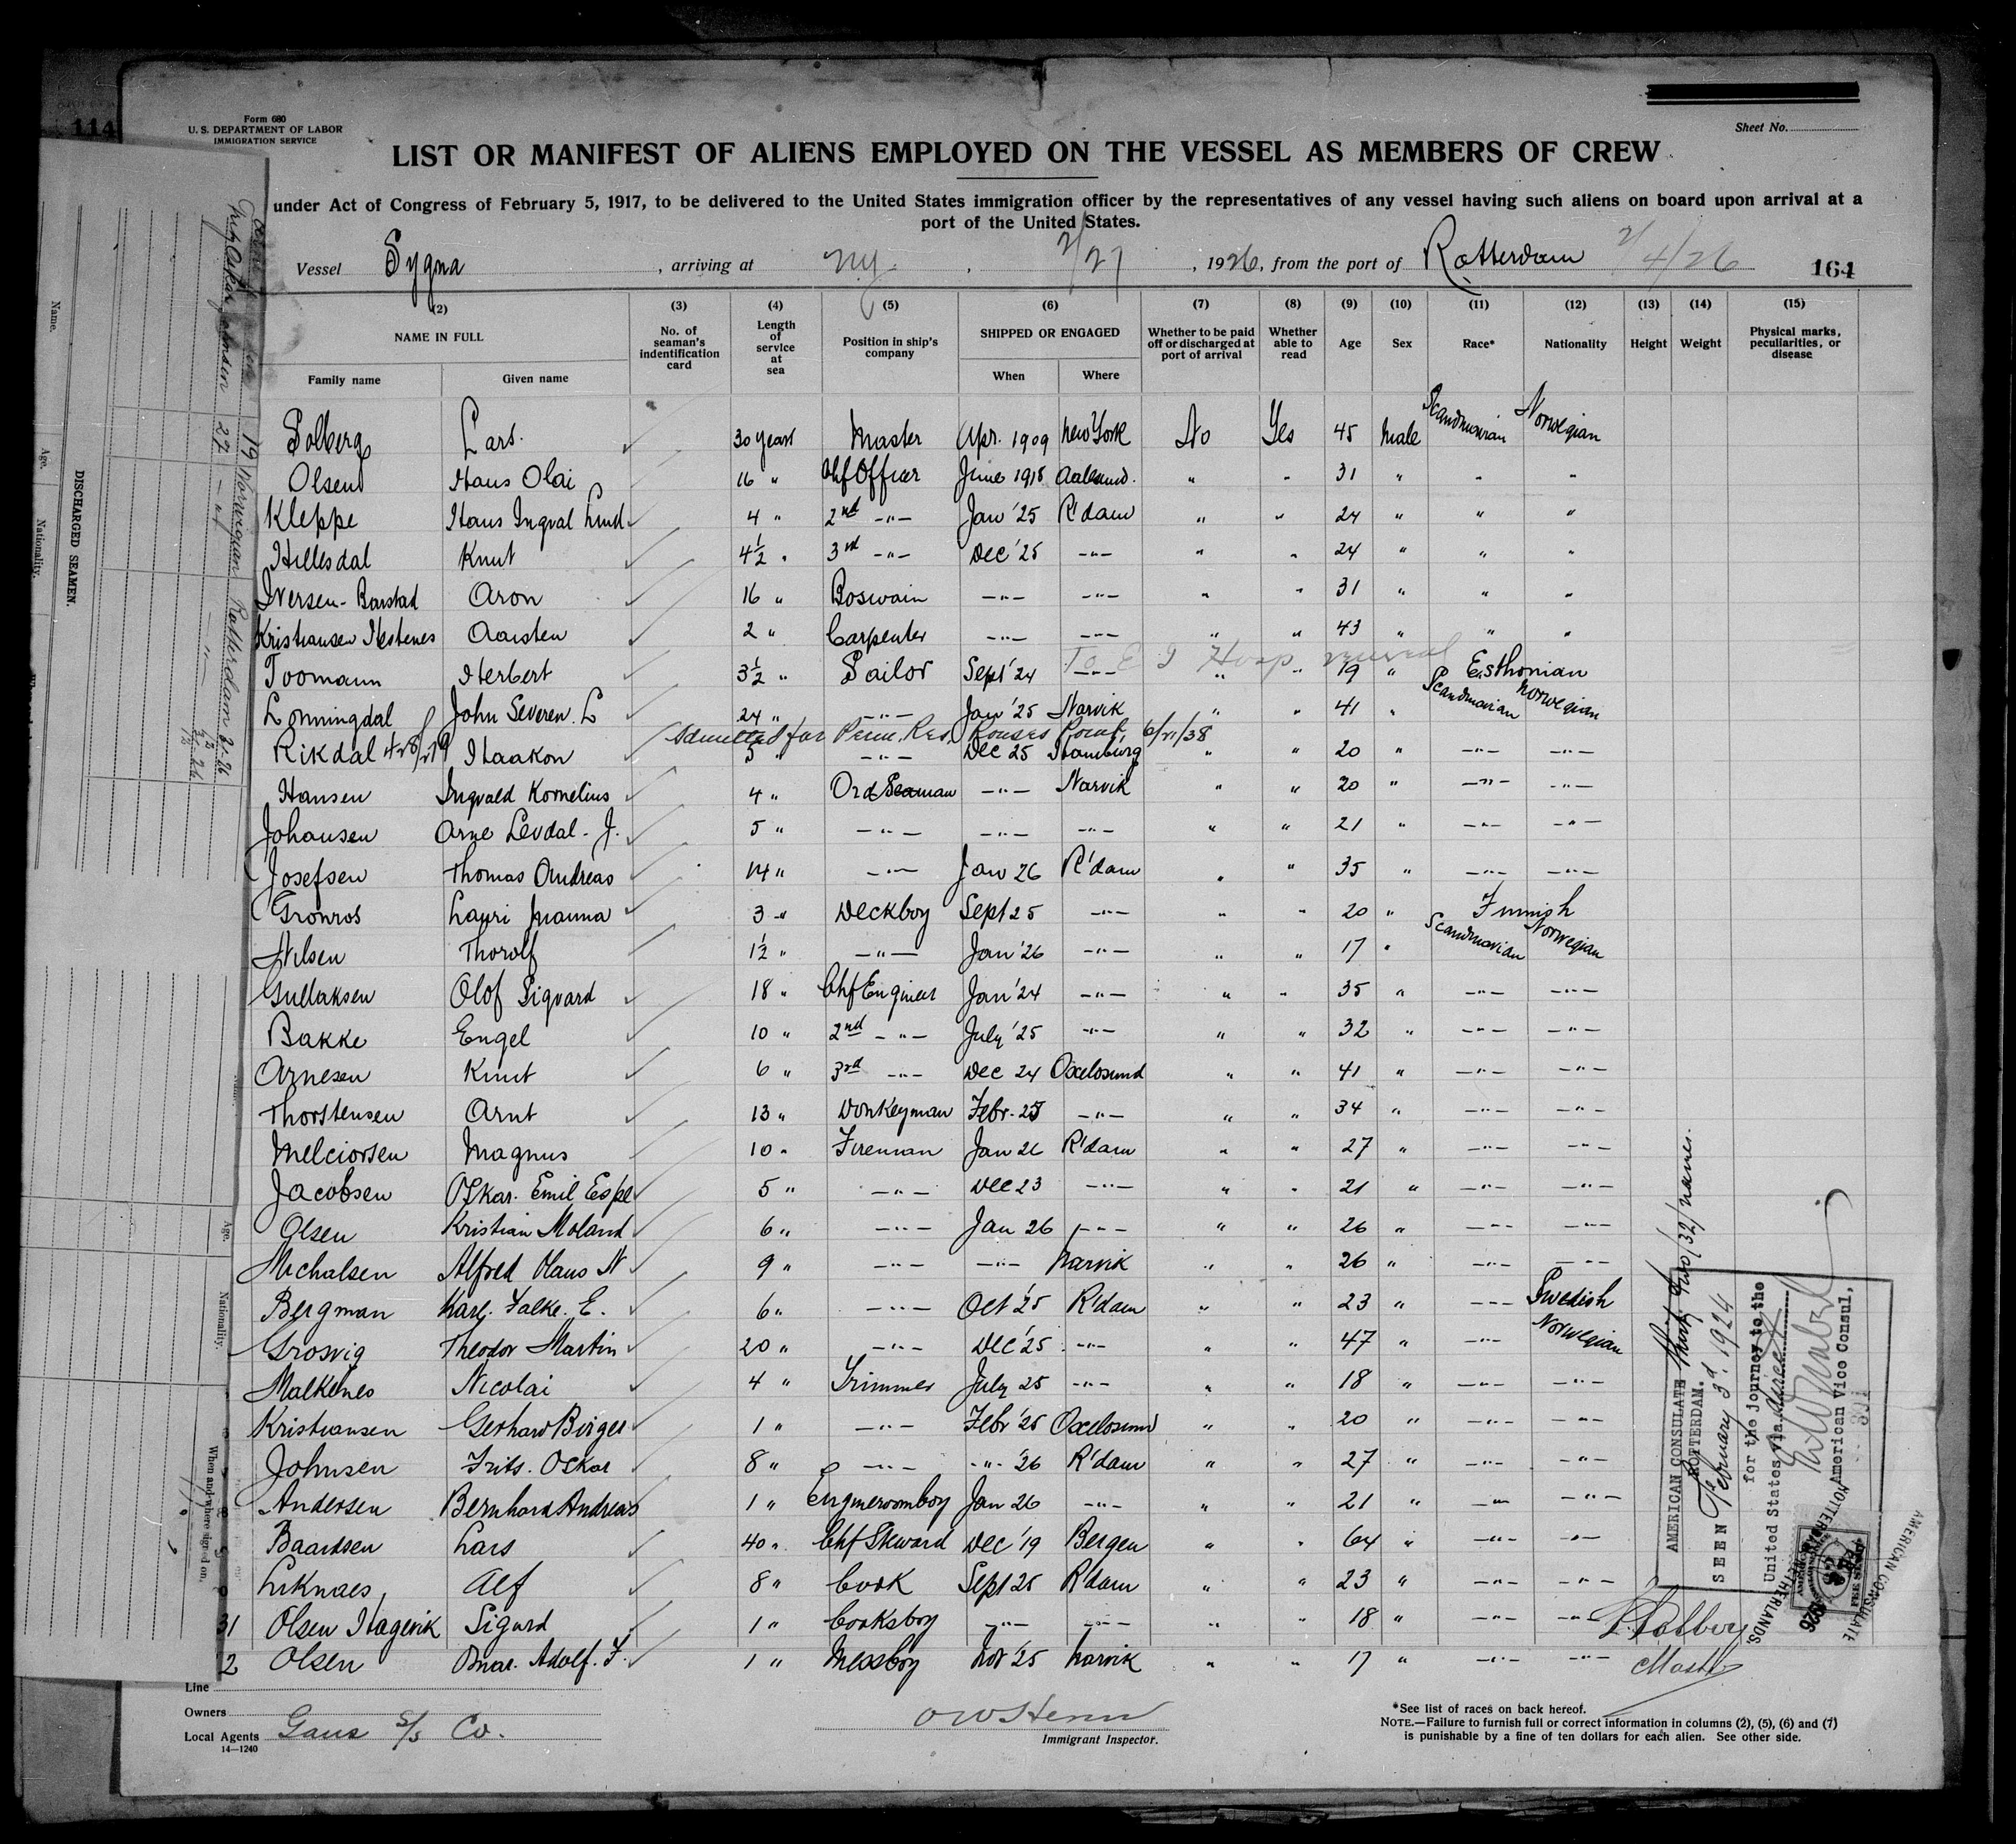 114
Form 680
U. S. DEPARTMENT OF LABOR
IMMIGRATION SERVICE
Sheet No.
LIST OR MANIFEST OF ALIENS EMPLOYED ON THE VESSEL AS MEMBERS OF CREW
under Act of Congress of February 5, 1917, to be delivered to the United States immigration officer by the representatives of any vessel having such aliens on board upon arrival at a
port of the United States.
Vessel Sygna, arriving at NY, 2/27, 1926, from the port of Rotterdam 2/4/26 164
(2) (3) (4) (5) (6) (7) (8) (9) (10) (11) (12) (13) (14) (15)
NAME IN FULL
Family name Given name
No. of seaman's indentification card
Length of service at sea
Position in ship's company
SHIPPED OR ENGAGED
When Where
Whether to be paid off or discharged at port of arrival
Whether able to read
Age
Sex
Race*
Nationality
Height
Weight
Physical marks, peculiarities, or disease
Solberg Lars. 30 years Master Apr. 1909 New York No Yes 45 Male Scandinavian Norwegian
Olsen Hans Olai 16 " Chf Officer June 1918 Aalesund. " " 31 " " "
Kleppe Hans Ingval Lund 4 " 2nd -"- Jan '25 R'dam " " 24 " " "
Hillesdal Knut 4½ " 3rd -"- Dec '25 -"- " " 24 " " "
Iversen-Barstad Aron 16 " Boswain -"- -"- " " 31 " " "
Kristiansen Hestenes Aarsten 2 " Carpenter -"- -"- " " 43 " " "
To E I Hosp
Toomann Herbert 3½ " Sailor Sept '24 -"- " " 19 " Esthonian
Lonningdal John Severen. L 24 " -"- Jan '25 Narvik " " 41 " Scandinavian Norwegian
Admitted for Perm. Res. Rouses Point 6/21/38
Rikdal Haakon 5 " -"- Dec 25 Hamburg " " 20 " -"- -"-
Hansen Ingvald Kornelius 4 " Ord Seaman -"- Narvik " " 20 " -"- -"-
Johansen Arne Levdal. J. 5 " -"- -"- -"- " " 21 " -"- -"-
Josefsen Thomas Andreas 14 " -"- Jan 26 R'dam " " 35 " -"- -"-
Gronros Lauri 3 " Deckboy Sept 25 -"- " " 20 " Finnish
Nilsen Thorolf 1½ " -"- Jan '26 -"- " " 17 " Scandinavian Norwegian
Gullaksen Olof Sigvard 18 " Chf Engineer Jan '24 -"- " " 35 " -"- -"-
Bakke Engel 10 " 2nd -"- July '25 -"- " " 32 " -"- -"-
Arnesen Knut 6 " 3rd -"- Dec 24 Oxelosund " " 41 " -"- -"-
Thorstensen Arnt 13 " Donkeyman Febr. 25 -"- " " 34 " -"- -"-
Melciorsen Magnus 10 " Fireman Jan 26 R'dam " " 27 " -"- -"-
Jacobsen Oskar. Emil Espe 5 " -"- Dec 23 -"- " " 21 " -"- -"-
Olsen Kristian Moland 6 " -"- Jan 26 -"- " " 26 " -"- -"-
Michalsen Alfred Olaus N 9 " -"- -"- Narvik " " 26 " -"- -"-
Bergman Karl. Falke. E. 6 " -"- Oct '25 R'dam " " 23 " -"- Swedish
Grosvig Theodor Martin 20 " -"- Dec '25 -"- " " 47 " -"- Norwegian
Malkenes Nicolai 4 " Trimmer July 25 -"- " " 18 " -"- -"-
Kristiansen Gerhard Birger 1 " -"- Febr '25 Oxelosund " " 20 " -"- -"-
Johnsen Frits. Oskar 8 " -"- -"- '26 R'dam " " 27 " -"- -"-
Andersen Bernhard Andreas 1 " Engineroomboy Jan 26 -"- " " 21 " -"- -"-
Baardsen Lars 40 " Chf Steward Dec '19 Bergen " " 64 " -"- -"-
Luknaes Alf 8 " Cook Sept 25 R'dam " " 23 " -"- -"-
31 Olsen Hagevik Sigurd 1 " Cooksboy -"- -"- " " 18 " -"- -"-
2 Olsen Adolf. F. 1 " Messboy Nov '25 Narvik " " 17 " -"- -"-
Line
Owners
Local Agents Gans S/S Co.
14—1240
Immigrant Inspector.
*See list of races on back hereof.
NOTE.—Failure to furnish full or correct information in columns (2), (5), (6) and (7)
is punishable by a fine of ten dollars for each alien. See other side.
L Solberg
Master
AMERICAN CONSULATE Thirty two/32/names.
ROTTERDAM.
SEEN February 3d. 1926
for the journey to the
United States, via direct
American Vice Consul,
AMERICAN CONSULATE
ROTTERDAM, NETHERLANDS.
DISCHARGED SEAMEN.
Name.
Age.
Nationality.
19 Norwegian Rotterdam
27 -"-
Age.
Nationality.
When and where signed on.